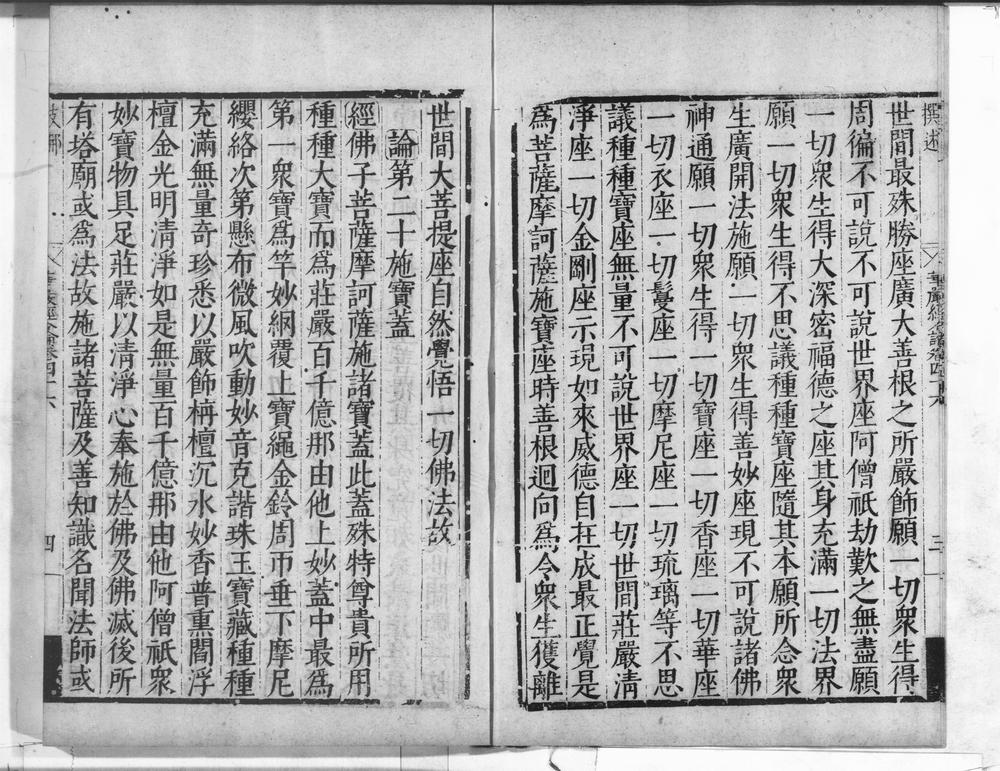 撰述
世間最殊勝座廣大善根之所嚴飾願一切衆生得
周徧不可說不可說世界座阿僧祇劫歎之無盡願
一切衆生得大深密福德之座其身充滿一切法界
願一切衆生得不思議種種寶座隨其本願所念衆
生廣開法施願一切衆生得善妙座現不可說諸佛
神通願一切衆生得一切寶座一切香座一切華座
一切衣座一切鬘座一切摩尼座一切琉璃等不思
議種種寶座無量不可說世界座一切世間莊嚴淸
淨座一切金剛座示現如來威德自在成最正覺是
爲菩薩摩訶薩施寶座時善根迴向爲令衆生獲離
世間大菩提座自然覺悟一切佛法故
論第二十施寶蓋
經佛子菩薩摩訶薩施諸寶蓋此蓋殊特尊貴所用
種種大寶而爲莊嚴百千億那由他上妙蓋中最爲
第一衆寶爲竿妙網覆上寶繩金鈴周帀垂下摩尼
纓絡次第懸布微風吹動妙音克諧珠玉寶藏種種
充滿無量奇珍悉以嚴飾栴檀沉水妙香普熏閻浮
檀金光明淸淨如是無量百千億那由他阿僧祇衆
妙寶物具足莊嚴以淸淨心奉施於佛及佛滅後所
有塔廟或爲法故施諸菩薩及善知識名聞法師或
四